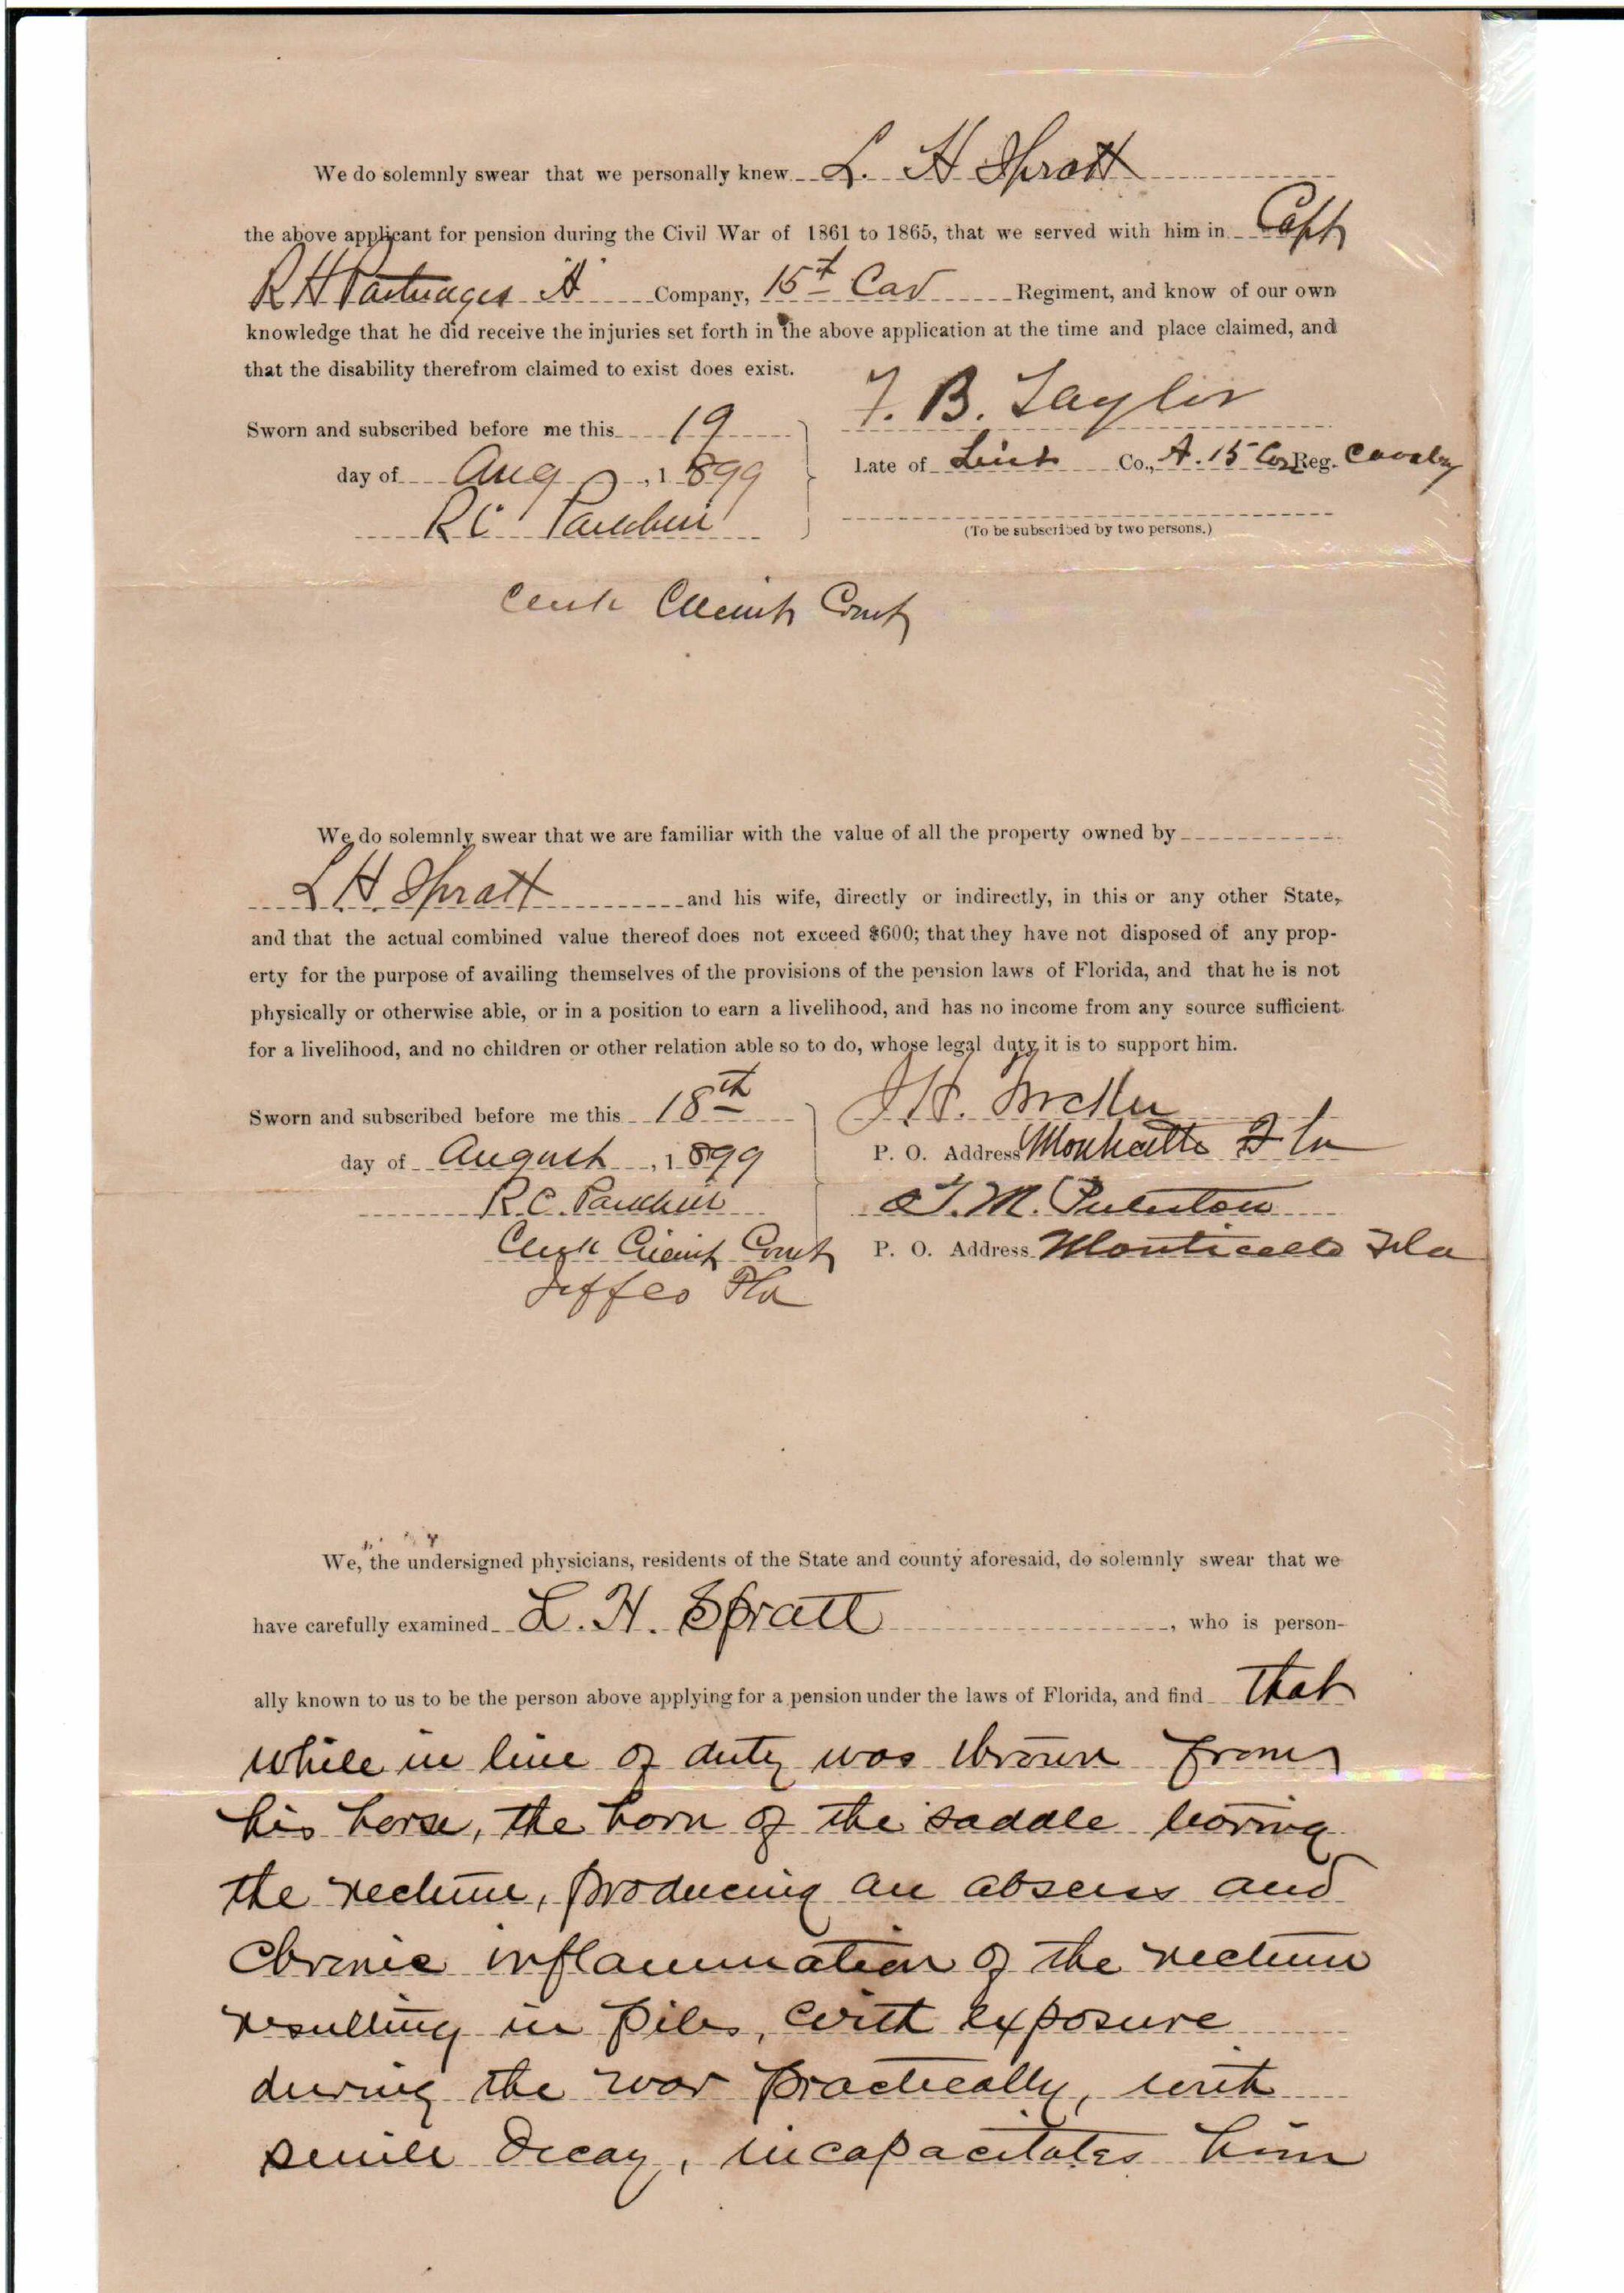 We do solemnly swear that we personally knew L. H Spratt
the above applicant for pension during the Civil War of 1861 to 1865, that we served with him in Capt
R H Partridges "A" Company, 15th Cav Regiment, and know of our own
knowledge that he did receive the injuries set forth in the above application at the time and place claimed, and
that the disability therefrom claimed to exist does exist.
F. B. Taylor
Sworn and subscribed before me this 19
Late of Lieut Co., A. 15 Con Reg. Cavalry
day of Aug, 1899
R C
(To be subscribed by two persons.)
Clerk Circuit Court
We do solemnly swear that we are familiar with the value of all the property owned by
L H. Spratt and his wife, directly or indirectly, in this or any other State,
and that the actual combined value thereof does not exceed $600; that they have not disposed of any prop-
erty for the purpose of availing themselves of the provisions of the pension laws of Florida, and that he is not
physically or otherwise able, or in a position to earn a livelihood, and has no income from any source sufficient
for a livelihood, and no children or other relation able so to do, whose legal duty it is to support him.
Sworn and subscribed before me this 18th
J H.
day of August, 1899
P. O. Address Monticello Fla
R. C.
T. M.
Clerk Circuit Court
P. O. Address Monticello Fla
Jeff Co Fla
We, the undersigned physicians, residents of the State and county aforesaid, do solemnly swear that we
have carefully examined L. H. Spratt, who is person-
ally known to us to be the person above applying for a pension under the laws of Florida, and find that
while in line of duty was thrown from
his horse, the horn of the saddle boring
the rectum, producing an abscess and
chronic inflammation of the rectum
resulting in piles, with exposure
during the war practically, with
senile decay, incapacitates him